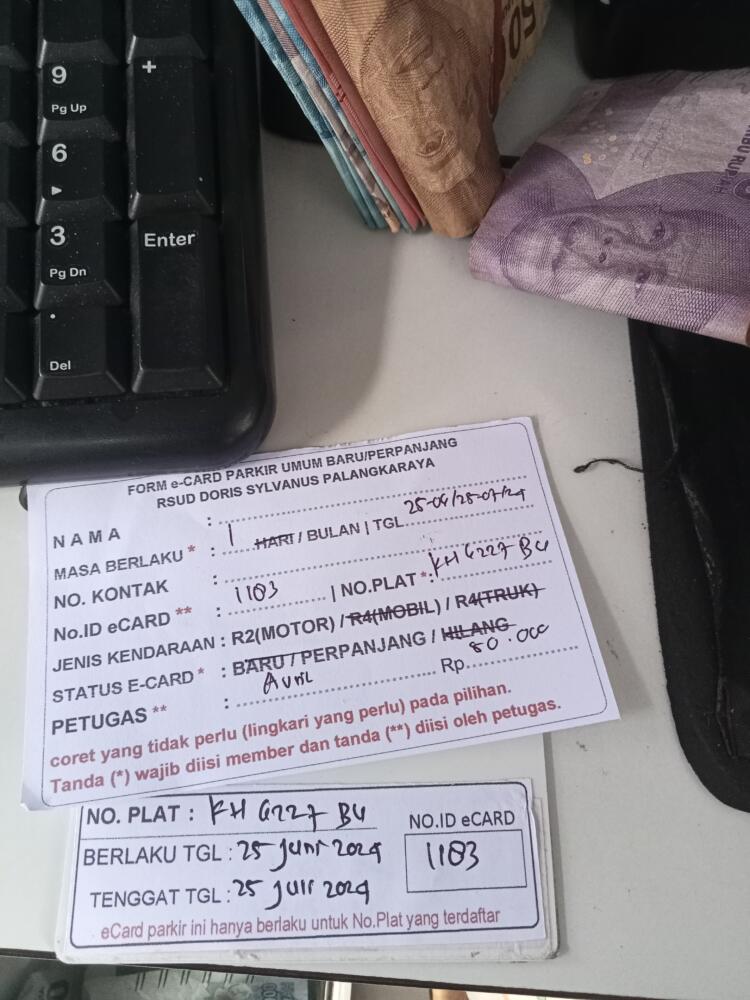 9
Pg Up
+
6
3
Pg Dn
Enter
.
Del
50
BU RUPIAH
FORM e-CARD PARKIR UMUM BARU/PERPANJANG
RSUD DORIS SYLVANUS PALANGKARAYA
NAMA :
MASA BERLAKU * : 1 HARI / BULAN | TGL. 25-06/25-07/24
NO. KONTAK :
No.ID eCARD ** : 1103 | NO.PLAT *: KH 6227 BU
JENIS KENDARAAN : R2(MOTOR) / R4(MOBIL) / R4(TRUK)
STATUS E-CARD * : BARU / PERPANJANG / HILANG
PETUGAS ** : Avril Rp. 80.000
coret yang tidak perlu (lingkari yang perlu) pada pilihan.
Tanda (*) wajib diisi member dan tanda (**) diisi oleh petugas.
NO. PLAT : KH 6227 BU
NO.ID eCARD
BERLAKU TGL : 25 Juni 2024
1103
TENGGAT TGL : 25 Juli 2024
eCard parkir ini hanya berlaku untuk No.Plat yang terdaftar